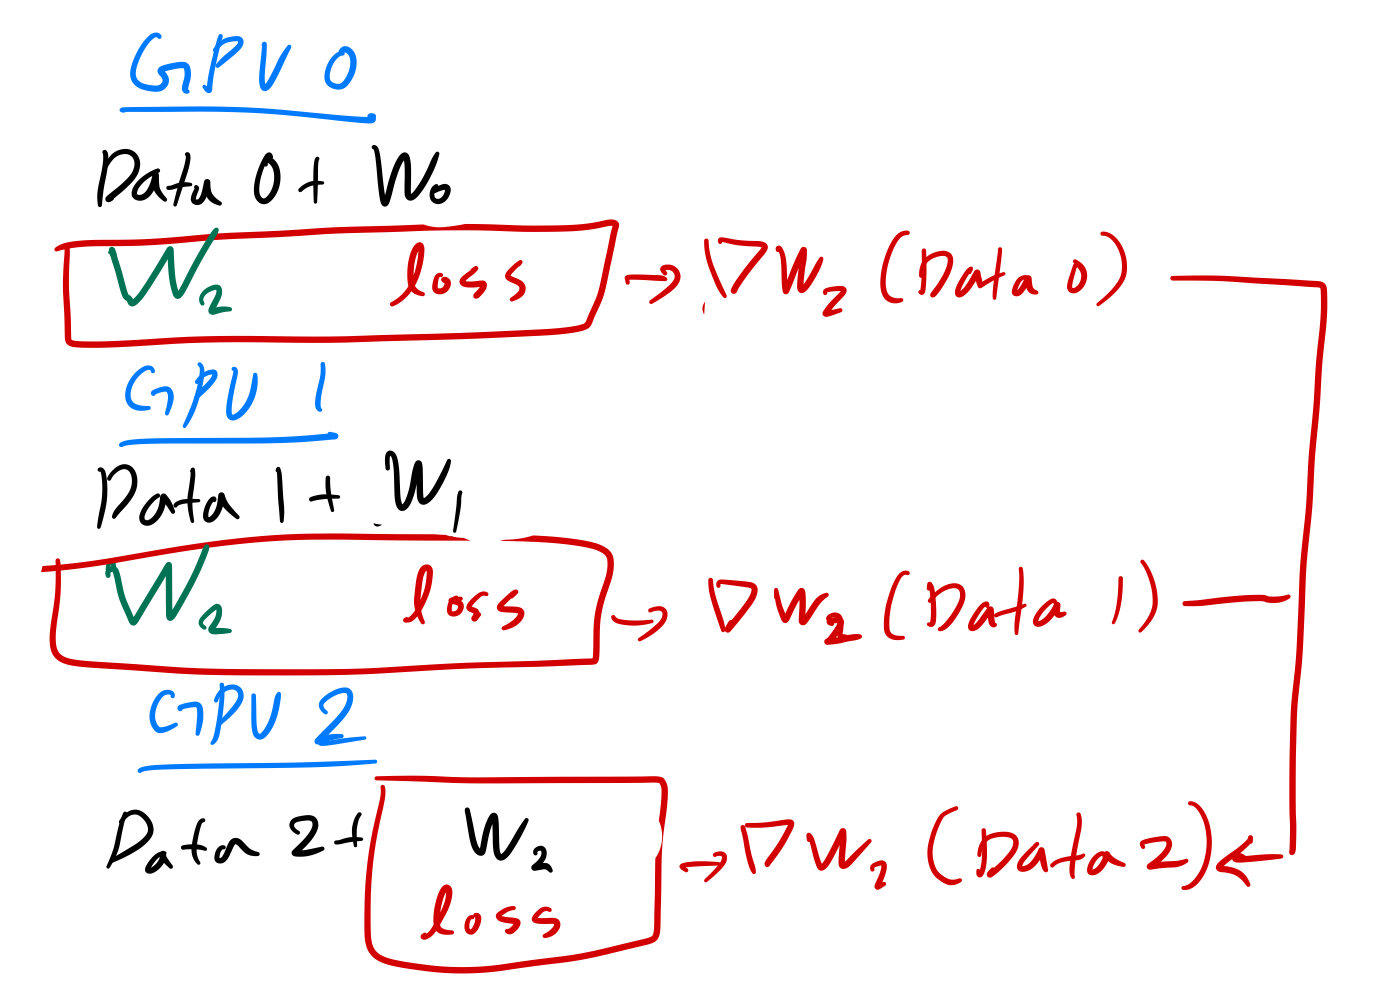 GPU 0
Data 0 + W₀
W₂ loss → ∇W₂ (Data 0)
GPU 1
Data 1 + W₁
W₂ loss → ∇W₂ (Data 1)
GPU 2
Data 2 + W₂ → ∇W₂ (Data 2)
loss